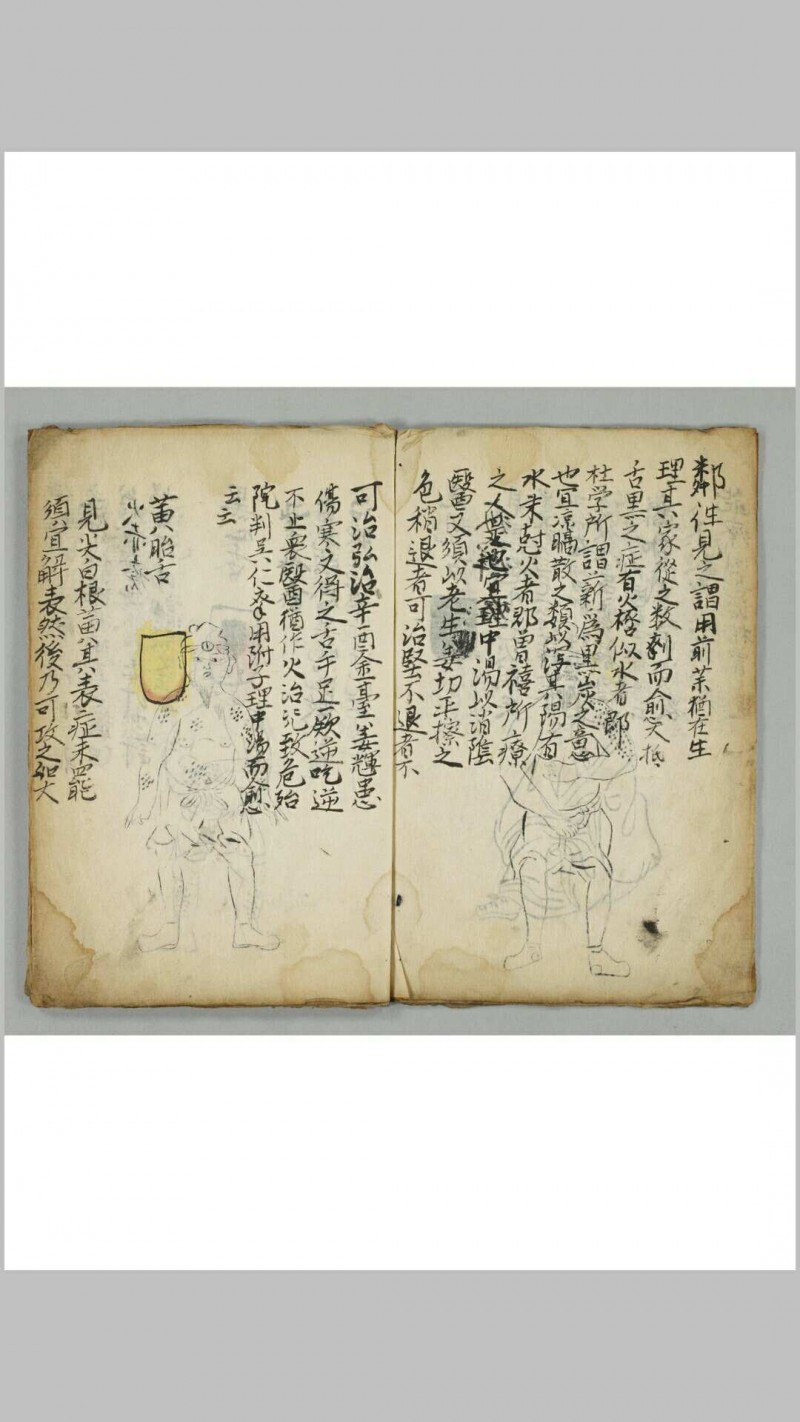 鄰伴見之謂用前茉猶在生
理其家從之数剤而俞矢抵
舌黒之症有火極似水者即
杜学所謂薪為黒炭之意
也宜凉膈散之類以瀉其陽有
水来尅火者即曽禧所療
之人是也宜理中湯以消陰
毉又須以老生姜切平擦之
色稍退者可治堅不退者不
可治弘治辛酉金臺姜輝患
傷寒文得之舌手足厥逆吃逆
不止衆毉猶作火治几致危殆
院判吴仁斎用附子理中湯而愈
云云
黄胎舌
見尖白根黄其表症未罷
須宜解表然後乃可攻之如大